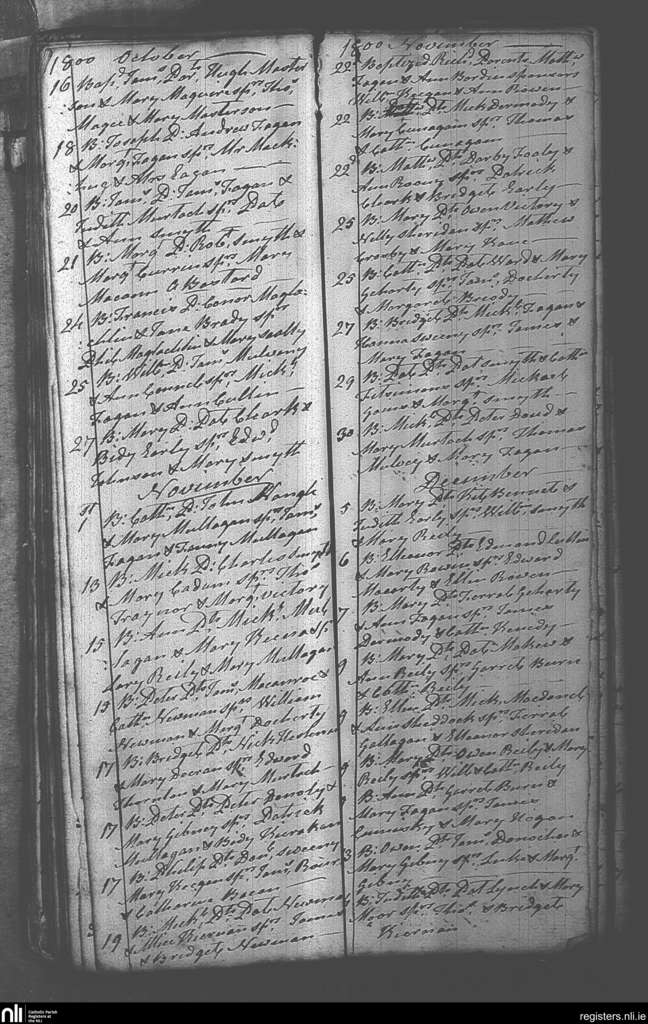 1800 October
16 Bapd. Jams. Dr. Hugh Master
son & Mary Maguire spr. Thos.
Magee & Mary Masterson
18 B. Joseph D. Andrew Fagan
& Margt. Fagan spr. Mr Mack
& Fagan
20 B. Jams. D. Jams. Fagan &
Judith Murtoch spr. Pat
& Ann Smyth
21 B. Margt. D. Robt. Smyth &
Margt. Curren spr. Mary
Macann A Bastard
24 B. Francis D. Conor Maglo
chlin & Jane Brady spr.
Phil Maglochlin & Mary
25 B. Willm. D. Jams.
& Ann Connel spr. Mick
Fagan & Ann Cullin
27 B. Mary D. Pat Cleark &
Bidy Early spr. Edwd.
Johnson & Mary Smyth
November
1st B. Cathn. D. John Nangle
& Mary Mullagan spr. Jams.
Fagan & Mullagan
13 B. Mick D. Charles Smyth
& Mary Cadum spr. Thos.
Traynor & Margt. Victory
15 B. Ann Dt. Mick
Fagan & Mary Kiernan sp.
Reily & Mary Mullagan
15 B. Peter Dt. Jams. Macanroe &
Cathn. Newman spr. William
Newman & Margt. Docherty
17 B. Bridget Dt. Nick
& Mary spr. Edward
Sheridan & Mary Murtoch
17 B. Peter Dt. Peter &
Mary Gebney spr. Patrick
Mullagan & Bidy
17 B. Philip Dt. Danl. Sweeny
Mary Keegan spr. Jams.
& Catharine
19 B. Mick Dt. Pat Newman
& Alice Kiernan spr. James
& Bridget Newman
1800 November
22 Baptized Parents Matthw
Fagan & Ann Borden sponsors
Willm. Keegan & Ann Rowen
22 B. Dt. Mick Dermody &
Mary Cunagan spr. Thomas
& Cathn. Cunagan
22d B. Matt. Dt. Darby Fooly &
Ann Roony spr. Patrick
Cleark & Bridget Early
25 B. Mary Dt. Owen Victory &
Nelly Sheridan spr. Mathew
Crosby & Mary
25 B. Cathn. Dt. Pat Ward & Mary
Geharty spr. Jams. Docherty
& Margaret
27 B. Bridget Dt. Mickl. Fagan &
Hanna Sweeny spr. James &
Mary Fagan
29 B. Pat Dt. Pat Smyth & Cathn.
Fitsimons spr. Michael
& Margt. Smyth
30 B. Mick Dt. Peter &
Mary Murtoch spr. Thomas
Mulvey & Mary Fagan
December
5 B. Mary Dt. Pat Bennet &
Judith Early spr. Willm. Smyth
& Mary Reily
6 B. Eleanor Dt. Edmond Cullin
& Mary Rowen spr. Edward
Macarty & Ellen Rowen
7 B. Mary Dt. Ferral Geharty
& Ann Fagan spr. James
Dermody & Cathn. Kenedy
9 B. Mary Dt. Pat &
Ann Reily spr. Garret Burn
& Cathn. Reily
9 B. Ellen Dt. Mick Macdonel
& spr. Ferral
Gallagan & Eleanor Sheridan
B. Mary Dt. Owen Reily & Mary
Reily spr. Will & Cathn. Reily
9 B. Ann Dt. Garret Burn &
Mary Fagan spr. James
& Mary Hogan
B. Owen Dt. Jams. Donochoe &
Mary Gebny spr. Luke & Margt.
Gebny
B. Judith Dt. Pat Lynch & Mary
spr. Thos. & Bridget
Kiernan
nli
Catholic Parish
Registers at
the NLI
registers.nli.ie